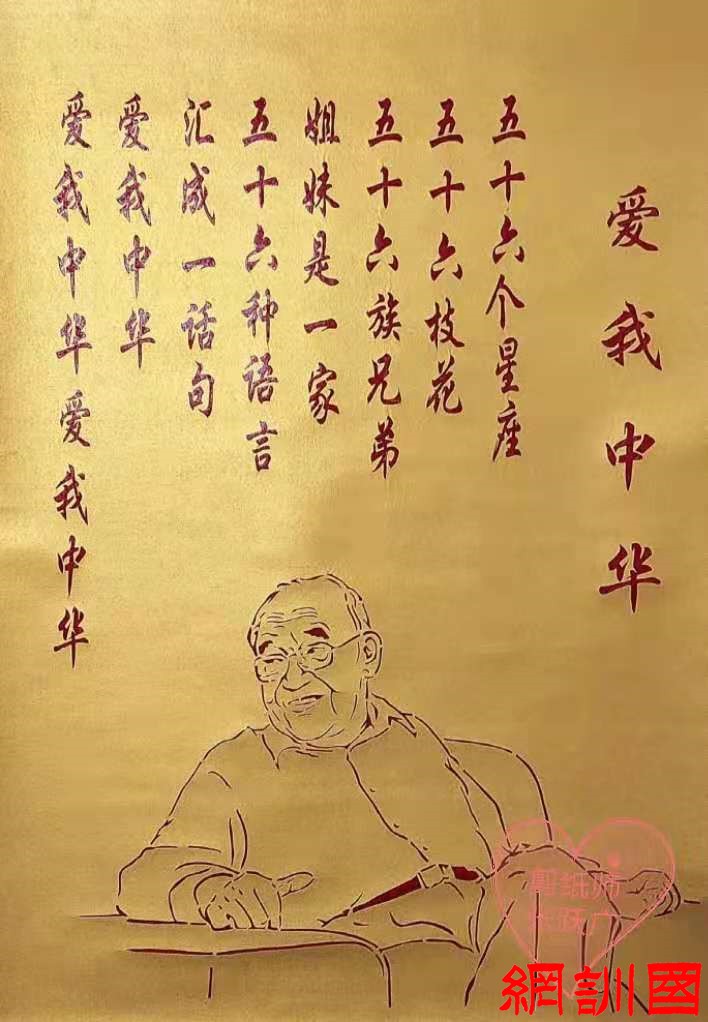 爱我中华
五十六个星座
五十六枝花
五十六族兄弟
姐妹是一家
五十六种语言
汇成一话句
爱我中华
爱我中华爱我中华
剪纸师
網訓國